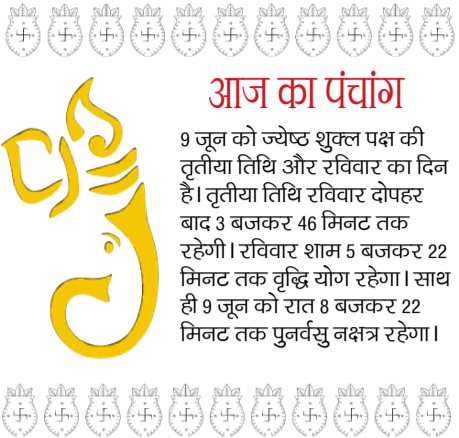 आज का पंचांग
9 जून को ज्येष्ठ शुक्ल पक्ष की
तृतीया तिथि और रविवार का दिन
है। तृतीया तिथि रविवार दोपहर
बाद 3 बजकर 46 मिनट तक
रहेगी। रविवार शाम 5 बजकर 22
मिनट तक वृद्धि योग रहेगा। साथ
ही 9 जून को रात 8 बजकर 22
मिनट तक पुनर्वसु नक्षत्र रहेगा।